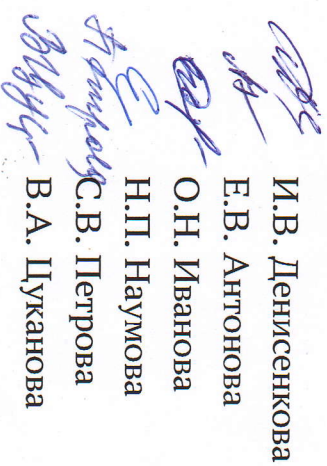 И.В. Денисенкова
Е.В. Антонова
О.Н. Иванова
Н.П. Наумова
С.В. Петрова
В.А. Цуканова